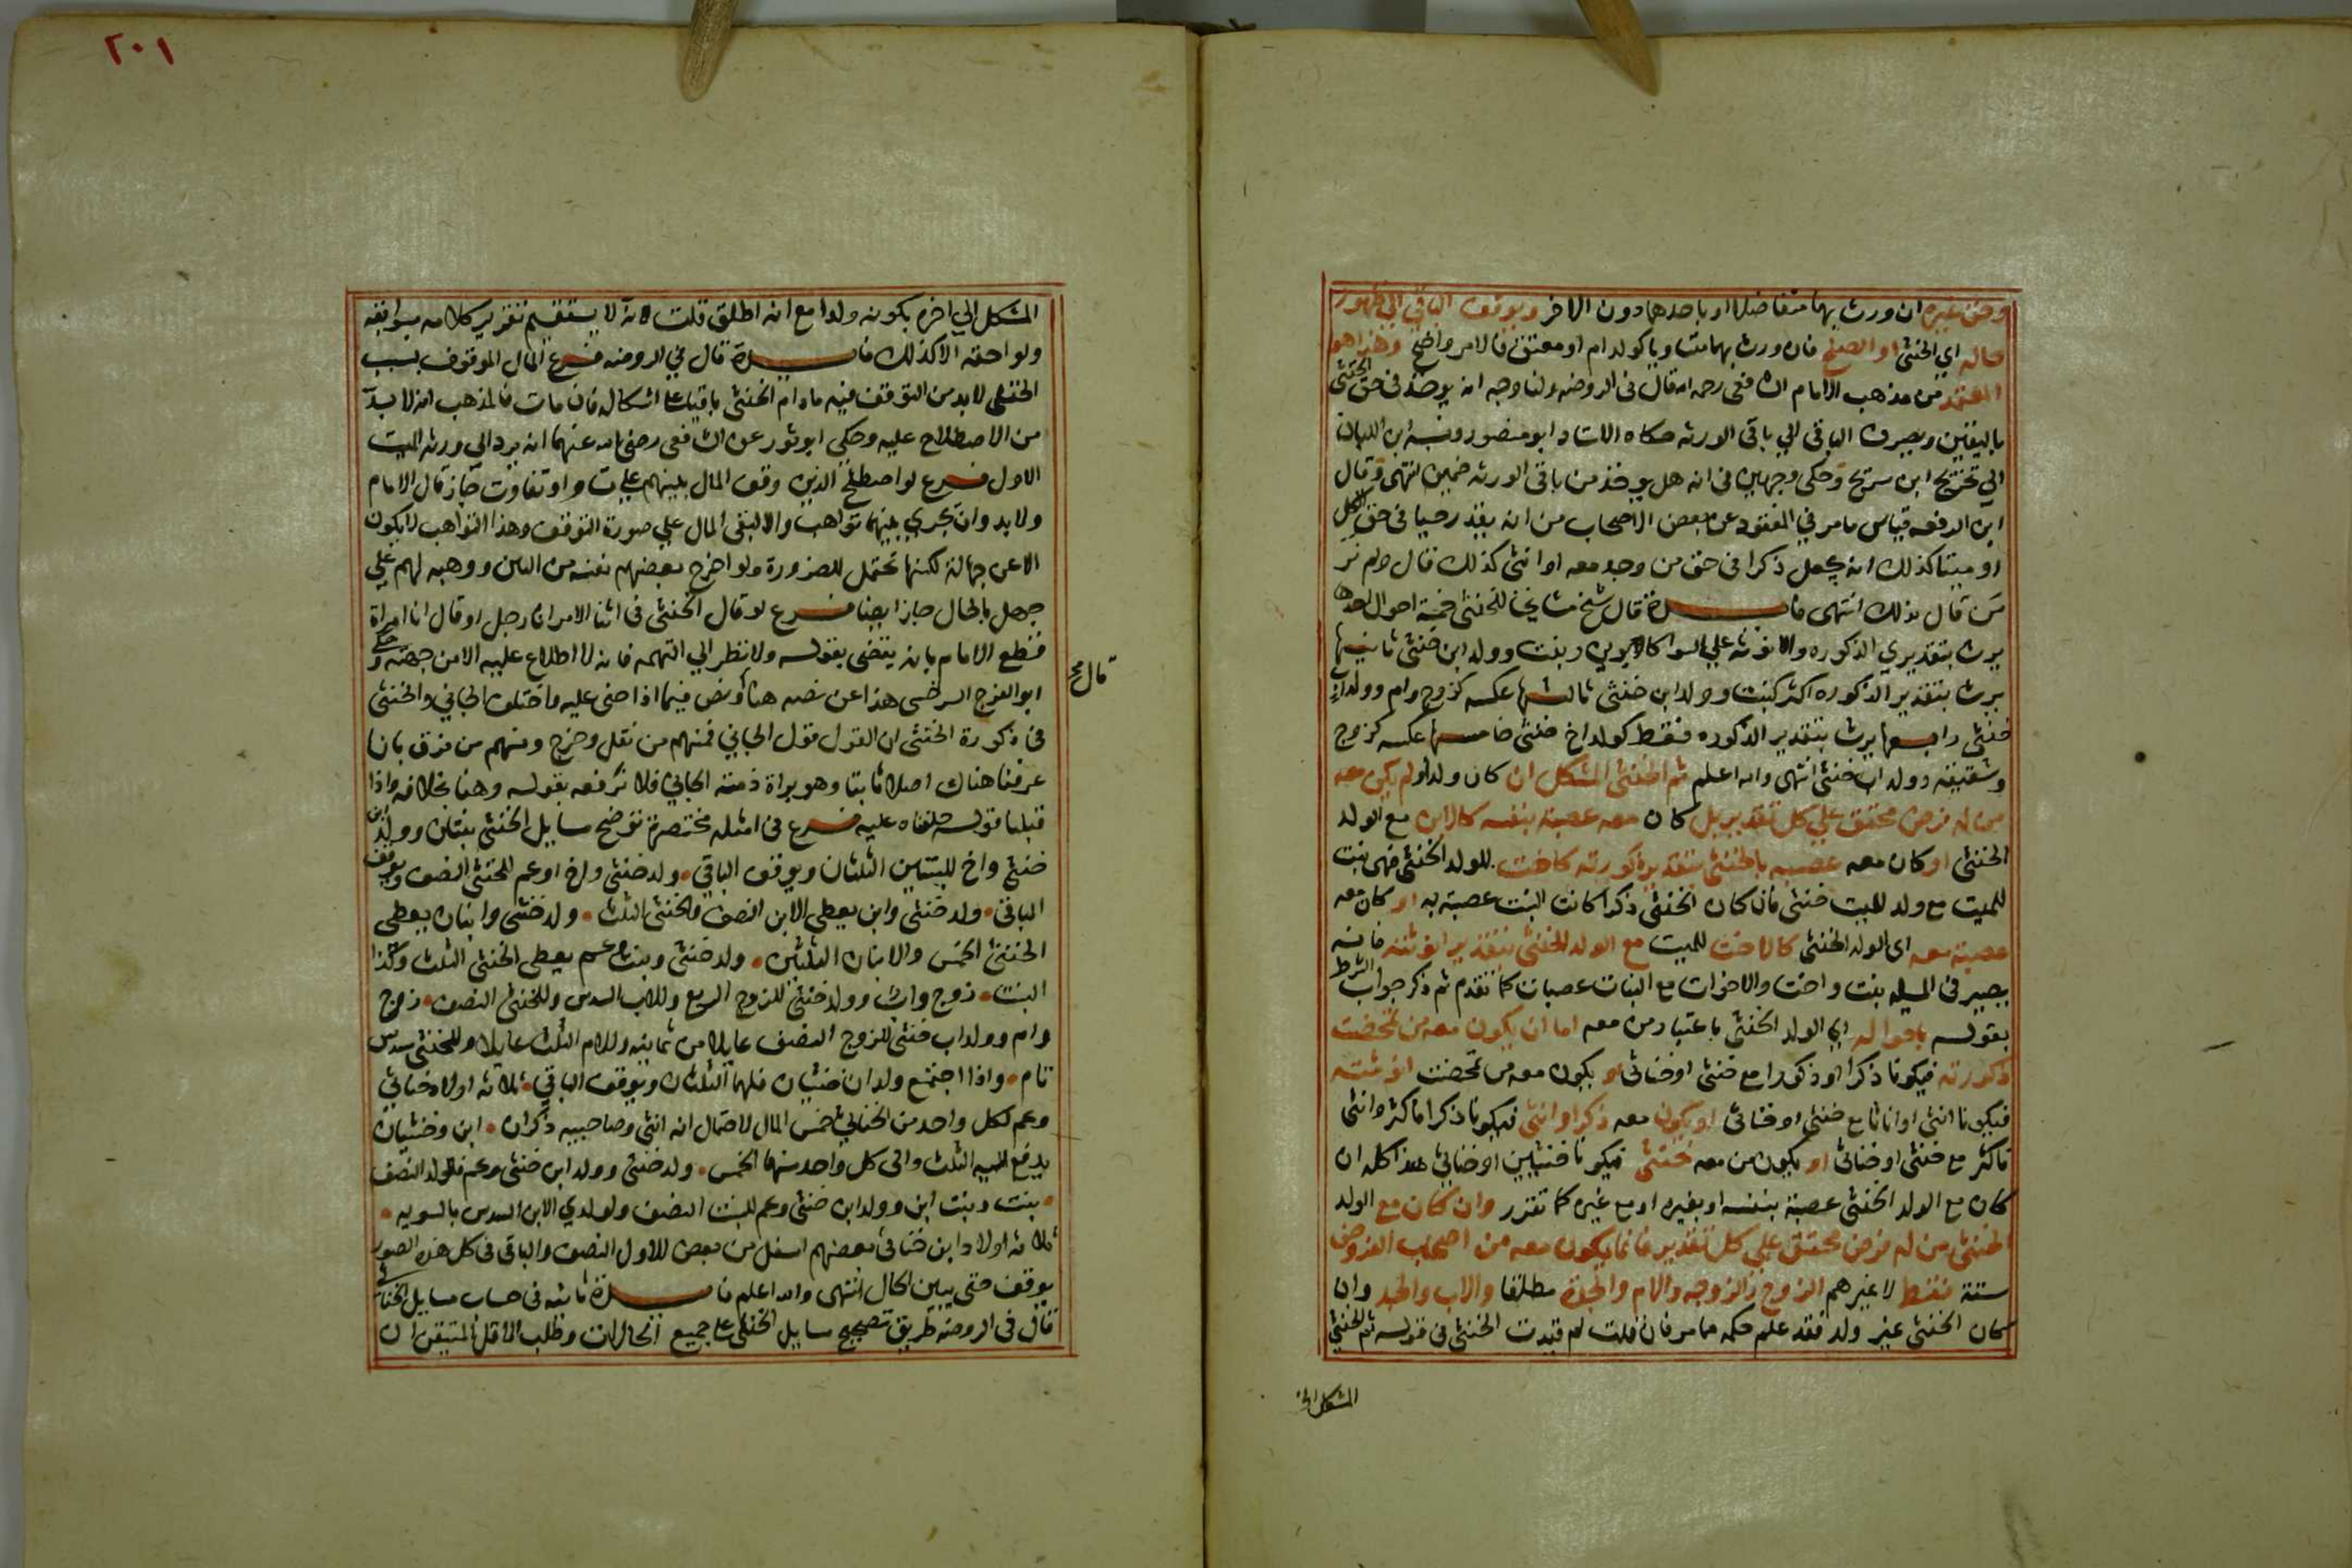 وحق غيره ان ورث بهما متفاضلا او باحدهما دون الاخر ويوقف الباقي الي ظهور
حاله اي الخنثى او الصلح فان ورث بهما متساويا كولد ام او معتق فالامر واضح وهذا هو
المعتمد من مذهب الامام الشافعي رحمه الله قال في الروضه ولنا وجه انه يوخذ في حق الخنثى
باليقين ويصرف الباقي الي باقي الورثه حكاه الاستاد ابو منصور ونسبه ابن اللبان
الي تخريج ابن سريج وحكى وجهين في انه هل يوخذ من باقي الورثه ضمين انتهى وقال
ابن الرفعه قياس ما مر في المفقود عن بعض الاصحاب من انه يقدر حيا في حق الكل
او ميتا كذلك انه يجعل ذكرا في حق من وجد معه او انثى كذلك قال ولم نر
من قال بذلك انتهى فايدة قال شيخ مشايخنا للخنثى خمسة احوال احدها
يرث بتقديري الذكوره والانوثه علي السوا كابوين وبنت وولد ابن خنثى ثانيها
يرث بتقدير الذكوره اكثر كبنت وولد ابن خنثى ثالثها عكسه كزوج وام وولد اب
خنثى رابعها يرث بتقدير الذكوره فقط كولد اخ خنثى خامسها عكسه كزوج
وشقيقه وولد اب خنثى انتهى والله اعلم ثم الخنثى المشكل ان كان ولدا ولم يكن معه
من له فرض محقق علي كل تقدير بل كان معه عصبة بنفسه كالابن مع الولد
الخنثى او كان معه عصبه بالخنثى بتقدير ذكورته كاخت للولد الخنثى فهى بنت
للميت مع ولد للميت خنثى فان كان الخنثى ذكرا كانت البنت عصبة به او كان معه
عصبة معه اى الولد الخنثى كالاخت للميت مع الولد الخنثى بتقدير انوثته فانه
يصير في المسيله بنت واخت والاخوات مع البنات عصبات كما تقدم ثم ذكر جواب الشرط
بقوله باحواله اي الولد الخنثى باعتبار من معه اما ان يكون معه من تمحضت
ذكورته فيكونا ذكرا او ذكورا مع خنثى او خناثى او يكون معه من تمحضت انوثته
فيكونا انثى او اناثا مع خنثى او خناثى او يكون معه ذكرا وانثى فيكونا ذكرا فاكثر وانثى
فاكثر مع خنثى او خناثى او يكون من معه خنثى فيكونا خنثيين او خناثي هذا كله ان
كان مع الولد الخنثى عصبة بنفسه او بغيره او مع غيره كما تقرر وان كان مع الولد
الخنثى من له فرض محقق علي كل تقدير فانما يكون معه من اصحاب الفروض
ستة فقط لا غيرهم الزوج والزوجه والام والجدة مطلقا والاب والجد وان
كان الخنثى غير ولد فقد علم حكمه مما مر فان قلت لم قيدت الخنثى في قوله ثم الخنثى
المشكل الى
٢٠١
المشكل الي اخره بكونه ولدا مع انه اطلق قلت لانه لا يستقيم تقرير كلامه بسوابقه
ولواحقه الا كذلك فايدة قال في الروضه فرع المال الموقوف بسبب
الخنثى لا بد من التوقف فيه ما دام الخنثى باقيا على اشكاله فان مات فالمذهب انه لا بد
من الاصطلاح عليه وحكى ابو ثور عن الشافعي رضي الله عنهما انه يرد الي ورثه الميت
الاول فرع لو اصطلح الذين وقف المال بينهم على تساو او تفاوت جاز قال الامام
ولا بد وان يجري بينهما تواهب والا لبقى المال علي صورة التوقف وهذا التواهب لا يكون
الا عن جهالة لكنها تحتمل للضرورة ولو اخرج بعضهم نفسه من البين ووهبه لهم علي
جهل بالحال جاز ايضا فرع لو قال الخنثى في اثنا الامر انا رجل او قال انا امراة
فقطع الامام بانه يقضى بقوله ولا نظر الي التهمه فانه لا اطلاع عليه الا من جهته وحكى
قال مح
ابو الفرج السرخسى هذا عن نصه هنا ونص فيما اذا جني عليه واختلف الجاني والخنثى
في ذكورة الخنثى ان القول قول الجاني فمنهم من نقل وخرج ومنهم من فرق بانا
عرفنا هناك اصلا ثابتا وهو براة ذمته الجاني فلا نرفعه بقوله وهنا بخلافه واذا
قبلنا قوله حلفناه عليه فرع في امثله مختصرة توضح مسايل الخنثى بنتان وولد ابن
خنثى واخ للبنتين الثلثان ويوقف الباقي • ولد خنثى واخ او عم للخنثى النصف ويوقف
الباقي • ولد خنثى وابن يعطى الابن النصف والخنثى الثلث • ولد خنثى وابنان يعطى
الخنثى الخمس والابنان الثلثين • ولد خنثى وبنت وعم يعطى الخنثى الثلث وكذا
البنت • زوج واب وولد خنثى للزوج الربع وللاب السدس وللخنثى النصف • زوج
وام وولد اب خنثى للزوج النصف عايلا من ثمانيه وللام الثلث عايلا وللخنثى سدس
تام • واذا اجتمع ولدان خنثيان فلهما الثلثان ويوقف الباقي • ثلاثه اولاد خناثي
وعم لكل واحد من الخناثي خمس المال لاحتمال انه انثى وصاحبيه ذكران • ابن وخنثيان
يدفع اليه الثلث والى كل واحد منهما الخمس • ولد خنثى وولد ابن خنثى وعم فللولد النصف
• بنت وبنت ابن وولد ابن خنثى وعم للبنت النصف ولولدي الابن السدس بالسويه •
ثلاثه اولاد ابن خناثى بعضهم اسفل من بعض للاول النصف والباقي في كل هذه الصور
يوقف حتى يبين الحال انتهى والله اعلم فايدة ثانيه في حساب مسايل الخناثى
قال في الروضه طريق تصحيح مسايل الخنثى على جميع الحالات وطلب الاقل المتيقن ان